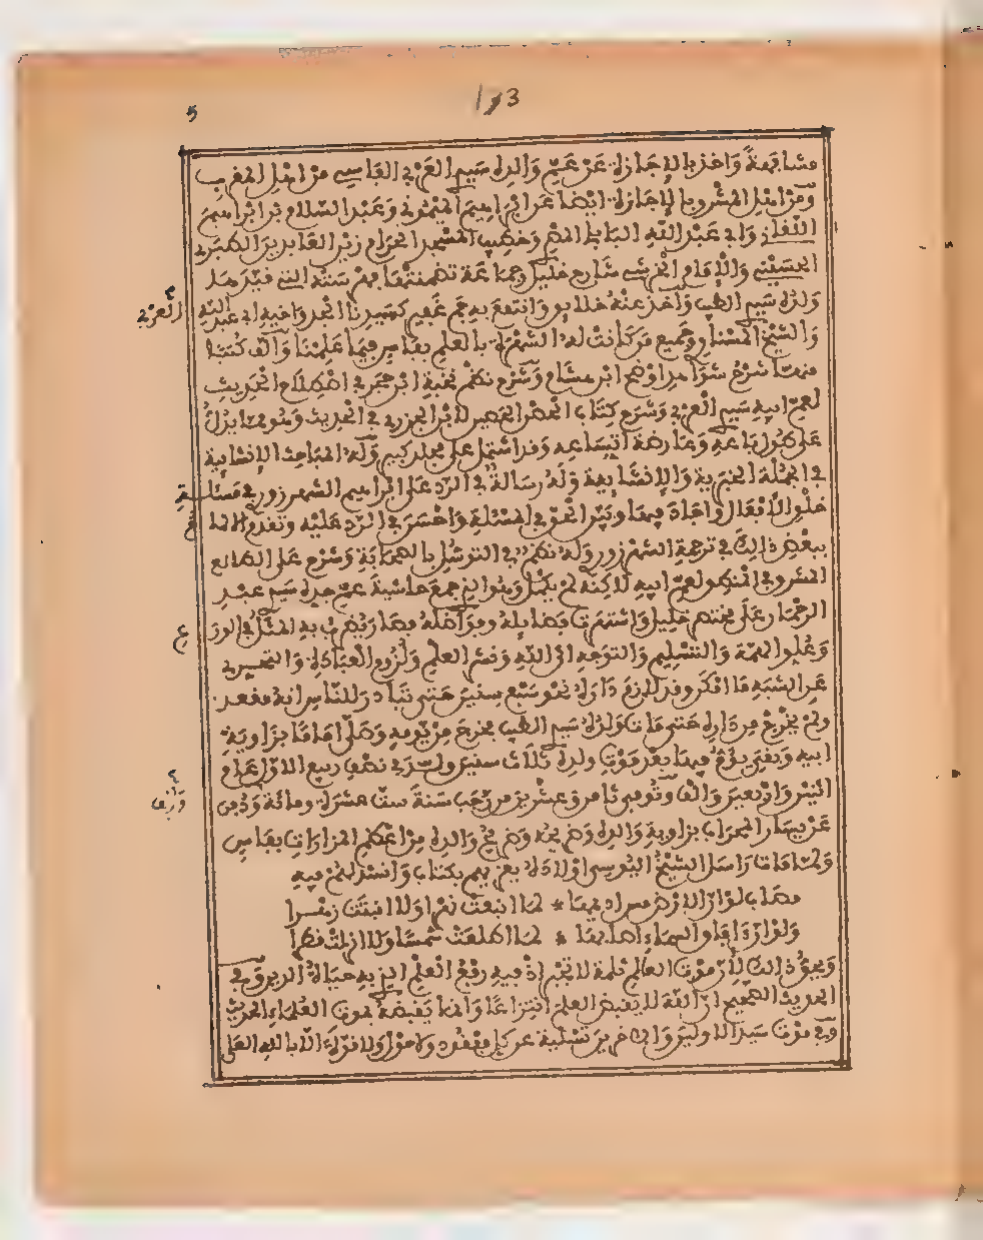 173
5
مشافهة واخذ بالاجازة عن عم والده سيدي العربي الفاسي من اهل المغرب
ومن اهل المشرق بالاجازة ايضا عن ابراهيم الميموني وعبد السلام بن ابراهيم
اللقاني وابي عبد الله البابلي المصري وخطيب المسجد الحرام زين العابدين الطبري
الحسيني والامام الخرشي شارح خليل وجماعة تضمنتها فهرسته التي قيدها
ولده سيدي الطيب واخذ عنه خلايق وانتفع به جم غفير كسيدنا الجد واخيه ابي عبد الله
العربي
والشيخ المسناوي وجميع من كانت له الشهرة بالعلم بفاس فيما علمنا والف كتبا
منها شرح شواهد اوضح ابن هشام وشرح نظم نخبة ابن حجر في اصطلاح الحديث
لعم ابيه سيدي العربي وشرح كتاب الحصن الحصين لابن الجزري في الحديث وهو مما يدل
على طول باعه وعارضة اتساعه وقد اشتمل على مجلد كبير وله المباحث الانشائية
في الجملة الخبرية والانشائية وله رسالة في الرد على ابراهيم الشهرزوري في مسئلة
خلق الافعال واجاد فيها وبين الحق في المسئلة واحسن في الرد عليه وتقدم الالماع
ببعض ذلك في ترجمة الشهرزوري وله نظم في التوسل بالصحابة وشرح على الطالع
المشرق في المنطق لعم ابيه لاكنه لم يكمل وهو الذي جمع حاشية عم جده سيدي عبد
الرحمان على مختصر خليل واشتهرت فضايله وفواضله فصار يضرب به المثل في الورع
وعلو الهمة والتسليم والتوجه الى الله ونشر العلم ولزوم العبادة والتحري
عن الشبه ما امكن وقد لزم داره نحو سبع سنين حتى نبا در للناس انه مقعد
ولم يخرج من داره حتى مات ولده سيدي الطيب فخرج من يومه وصلى اماما بزاوية
ابيه وبقي يؤم فيها بعد موت ولده ثلاث سنين ولد في نصف ربيع الاول عام
اثنين واربعين والف وتوفي ثامن وعشرين من رجب سنة ست عشرة ومائة ودفن
والف
عن يسار المحراب بزاوية والده وضريحه وضريح والده من اعظم المزارات بفاس
ولما مات راسل الشيخ اليوسي اولاده يعزيهم بكتاب وانشد لهم فيه
مصاب لو ان الارض فيها * لما انبعت نهرا ولا انبتت زهرا
ولو ان افاق السماء اصابها * لما اطلعت شمسا ولا ازلفت فجرا
ويحق ذلك لان موت العالم ثلمة لا تجبر اذ فيه رفع العلم الذي به حياة الدين وفي
الحديث الصحيح ان الله لا يقبض العلم انتزاعا وانما يقبضه بموت العلماء الحديث
وفي موت سيد الاولين والاخرين تسلية عن كل مفقود ولا حول ولا قوة الا بالله العلي